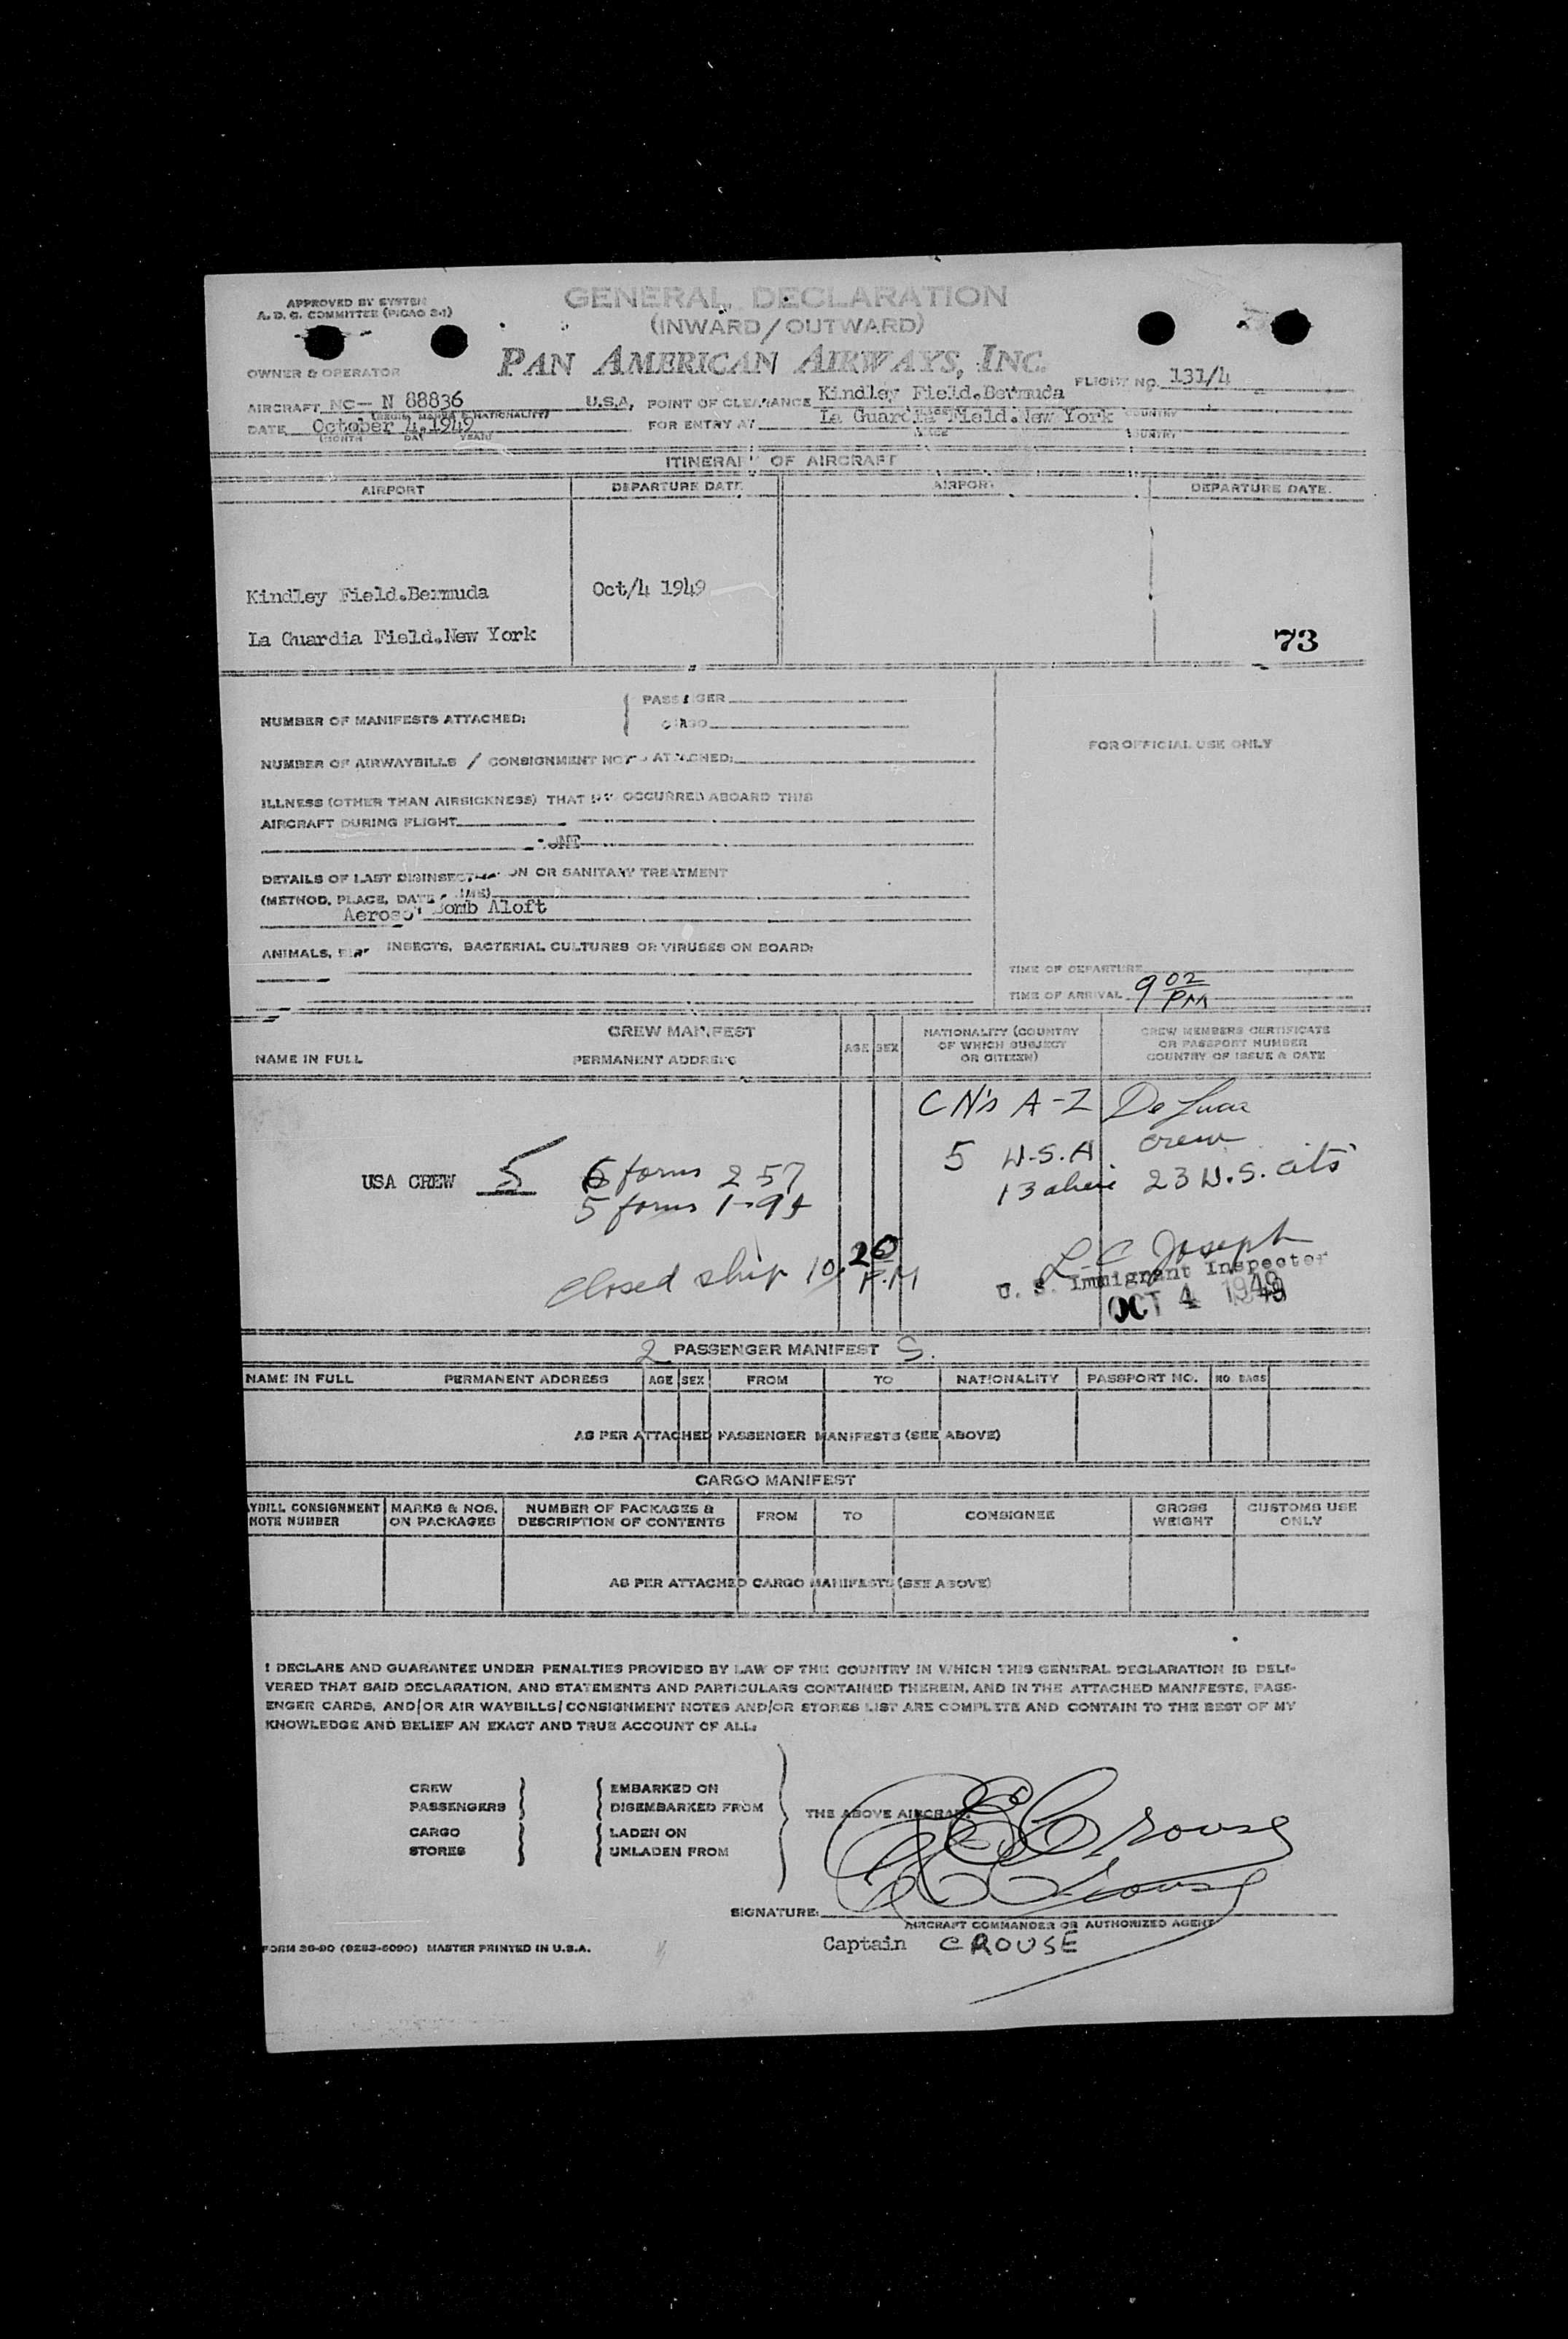 APPROVED BY SYSTEM
A. D. G. COMMITTEE (PICAO 2-1)
GENERAL DECLARATION
(INWARD/OUTWARD)
PAN AMERICAN AIRWAYS, INC.
OWNER & OPERATOR
FLIGHT NO. 131/4
AIRCRAFT NC- N 88836 U.S.A. POINT OF CLEARANCE Kindley Field.Bermuda
DATE October 4.1949 FOR ENTRY AT La Guardia Field.New York COUNTRY
(MONTH DAY YEAR) PLACE COUNTRY
ITINERARY OF AIRCRAFT
AIRPORT DEPARTURE DATE AIRPORT DEPARTURE DATE.
Kindley Field.Bermuda Oct/4 1949
La Guardia Field.New York
73
NUMBER OF MANIFESTS ATTACHED: PASSENGER
CARGO
FOR OFFICIAL USE ONLY
NUMBER OF AIRWAYBILLS / CONSIGNMENT NOTES ATTACHED:
ILLNESS (OTHER THAN AIRSICKNESS) THAT HAS OCCURRED ABOARD THIS
AIRCRAFT DURING FLIGHT
DETAILS OF LAST DISINSECTION OR SANITARY TREATMENT
(METHOD, PLACE, DATE, TIME)
Aerosol Bomb Aloft
ANIMALS, INSECTS, BACTERIAL CULTURES OR VIRUSES ON BOARD:
TIME OF DEPARTURE
TIME OF ARRIVAL 9 02 PM
CREW MANIFEST
NAME IN FULL PERMANENT ADDRESS AGE SEX
NATIONALITY (COUNTRY
OF WHICH SUBJECT
OR CITIZEN)
CREW MEMBERS CERTIFICATE
OR PASSPORT NUMBER
COUNTRY OF ISSUE & DATE
CN's A-Z De Luca
5 U.S.A crew
USA CREW 5 6 forms 257
13 aliens 23 U.S. cits
5 forms I-94
closed ship 10.20 P.M
L C Joseph
U. S. Immigrant Inspector
OCT 4 1949
2 PASSENGER MANIFEST S.
NAME IN FULL PERMANENT ADDRESS AGE SEX FROM TO NATIONALITY PASSPORT NO. NO. BAGS
AS PER ATTACHED PASSENGER MANIFESTS (SEE ABOVE)
CARGO MANIFEST
YBILL CONSIGNMENT
NOTE NUMBER
MARKS & NOS.
ON PACKAGES
NUMBER OF PACKAGES &
DESCRIPTION OF CONTENTS
FROM TO CONSIGNEE
GROSS
WEIGHT
CUSTOMS USE
ONLY
AS PER ATTACHED CARGO MANIFESTS (SEE ABOVE)
I DECLARE AND GUARANTEE UNDER PENALTIES PROVIDED BY LAW OF THE COUNTRY IN WHICH THIS GENERAL DECLARATION IS DELI-
VERED THAT SAID DECLARATION, AND STATEMENTS AND PARTICULARS CONTAINED THEREIN, AND IN THE ATTACHED MANIFESTS, PASS-
ENGER CARDS, AND/OR AIR WAYBILLS/CONSIGNMENT NOTES AND/OR STORES LIST ARE COMPLETE AND CONTAIN TO THE BEST OF MY
KNOWLEDGE AND BELIEF AN EXACT AND TRUE ACCOUNT OF ALL:
CREW EMBARKED ON
PASSENGERS DISEMBARKED FROM THE ABOVE AIRCRAFT.
CARGO LADEN ON
STORES UNLADEN FROM
E Crouse
E Crouse
SIGNATURE:
AIRCRAFT COMMANDER OR AUTHORIZED AGENT
Captain CROUSE
FORM 36-90 (9283-5090) MASTER PRINTED IN U.S.A.